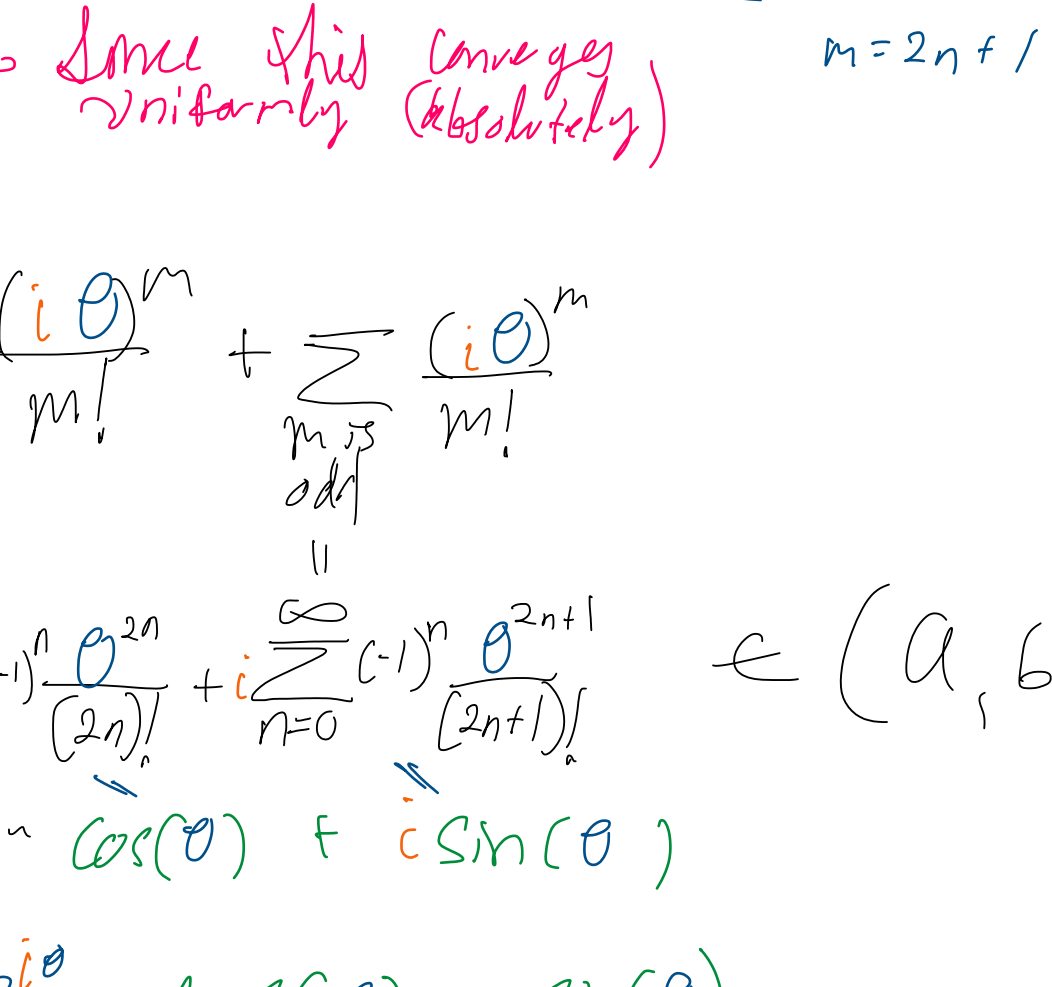 Since this converges m = 2n + 1
Uniformly (absolutely)
(i θ)^m / m! + ∑_{m is odd} (i θ)^m / m!
=
-1)^n θ^{2n} / (2n)! + i ∑_{n=0}^{∞} (-1)^n θ^{2n+1} / (2n+1)! ∈ (a, b
= =
cos(θ) + i sin(θ)
iθ